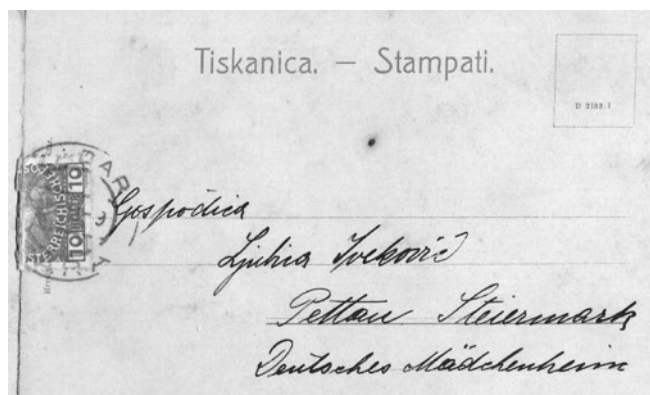 Tiskanica. — Stampati.
D 2182.I
10 10
ÖSTERREICHISCHE
Gospodica
Ljubica Iveković
Pettau Steiermark
Deutsches Mädchenheim